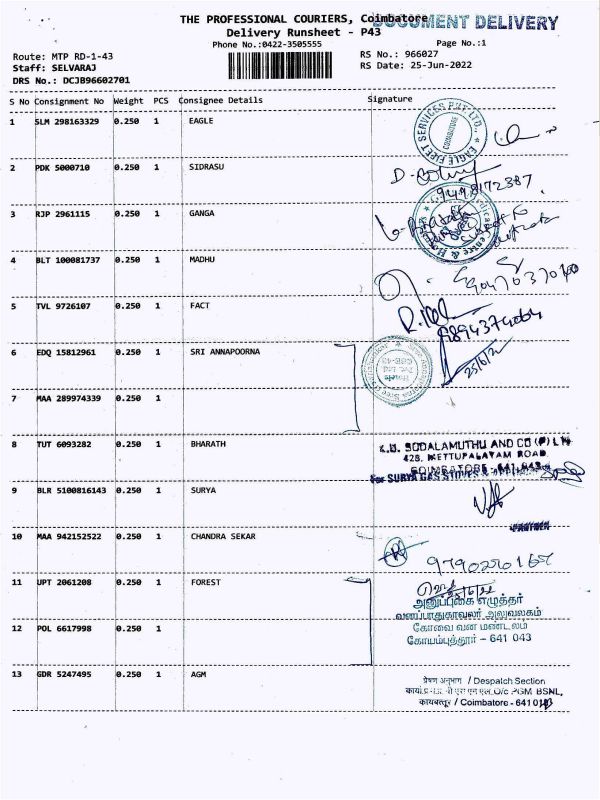 THE PROFESSIONAL COURIERS, Coimbatore
DOCUMENT DELIVERY
Delivery Runsheet - P43
Phone No.:0422-3505555
Page No.:1
Route: MTP RD-1-43
RS No.: 966027
Staff: SELVARAJ
RS Date: 25-Jun-2022
DRS No.: DCJB96602701
S No Consignment No Weight PCS Consignee Details Signature
1 SLM 298163329 0.250 1 EAGLE
EAGLE FLEET SERVICES PVT LTD., COIMBATORE
2 PDK 5000710 0.250 1 SIDRASU
3 RJP 2961115 0.250 1 GANGA
4 BLT 100081737 0.250 1 MADHU
5 TVL 9726107 0.250 1 FACT
6 EDQ 15812961 0.250 1 SRI ANNAPOORNA
25/6/22
7 MAA 289974339 0.250 1
8 TUT 6093282 0.250 1 BHARATH
SODALAMUTHU AND CO (P) LTD
428, METTUPALAYAM ROAD,
COIMBATORE - 641 043
For SURYA GAS STOVES &
9 BLR 5100816143 0.250 1 SURYA
PARTNER
10 MAA 942152522 0.250 1 CHANDRA SEKAR
11 UPT 2061208 0.250 1 FOREST
அனுப்புகை எழுத்தர்
வனப்பாதுகாவலர் அலுவலகம்
12 POL 6617998 0.250 1
கோவை வன மண்டலம்
கோயம்புத்தூர் – 641 043
13 GDR 5247495 0.250 1 AGM
प्रेषण अनुभाग / Despatch Section
O/c PGM BSNL,
कोयम्बत्तूर / Coimbatore - 641 043